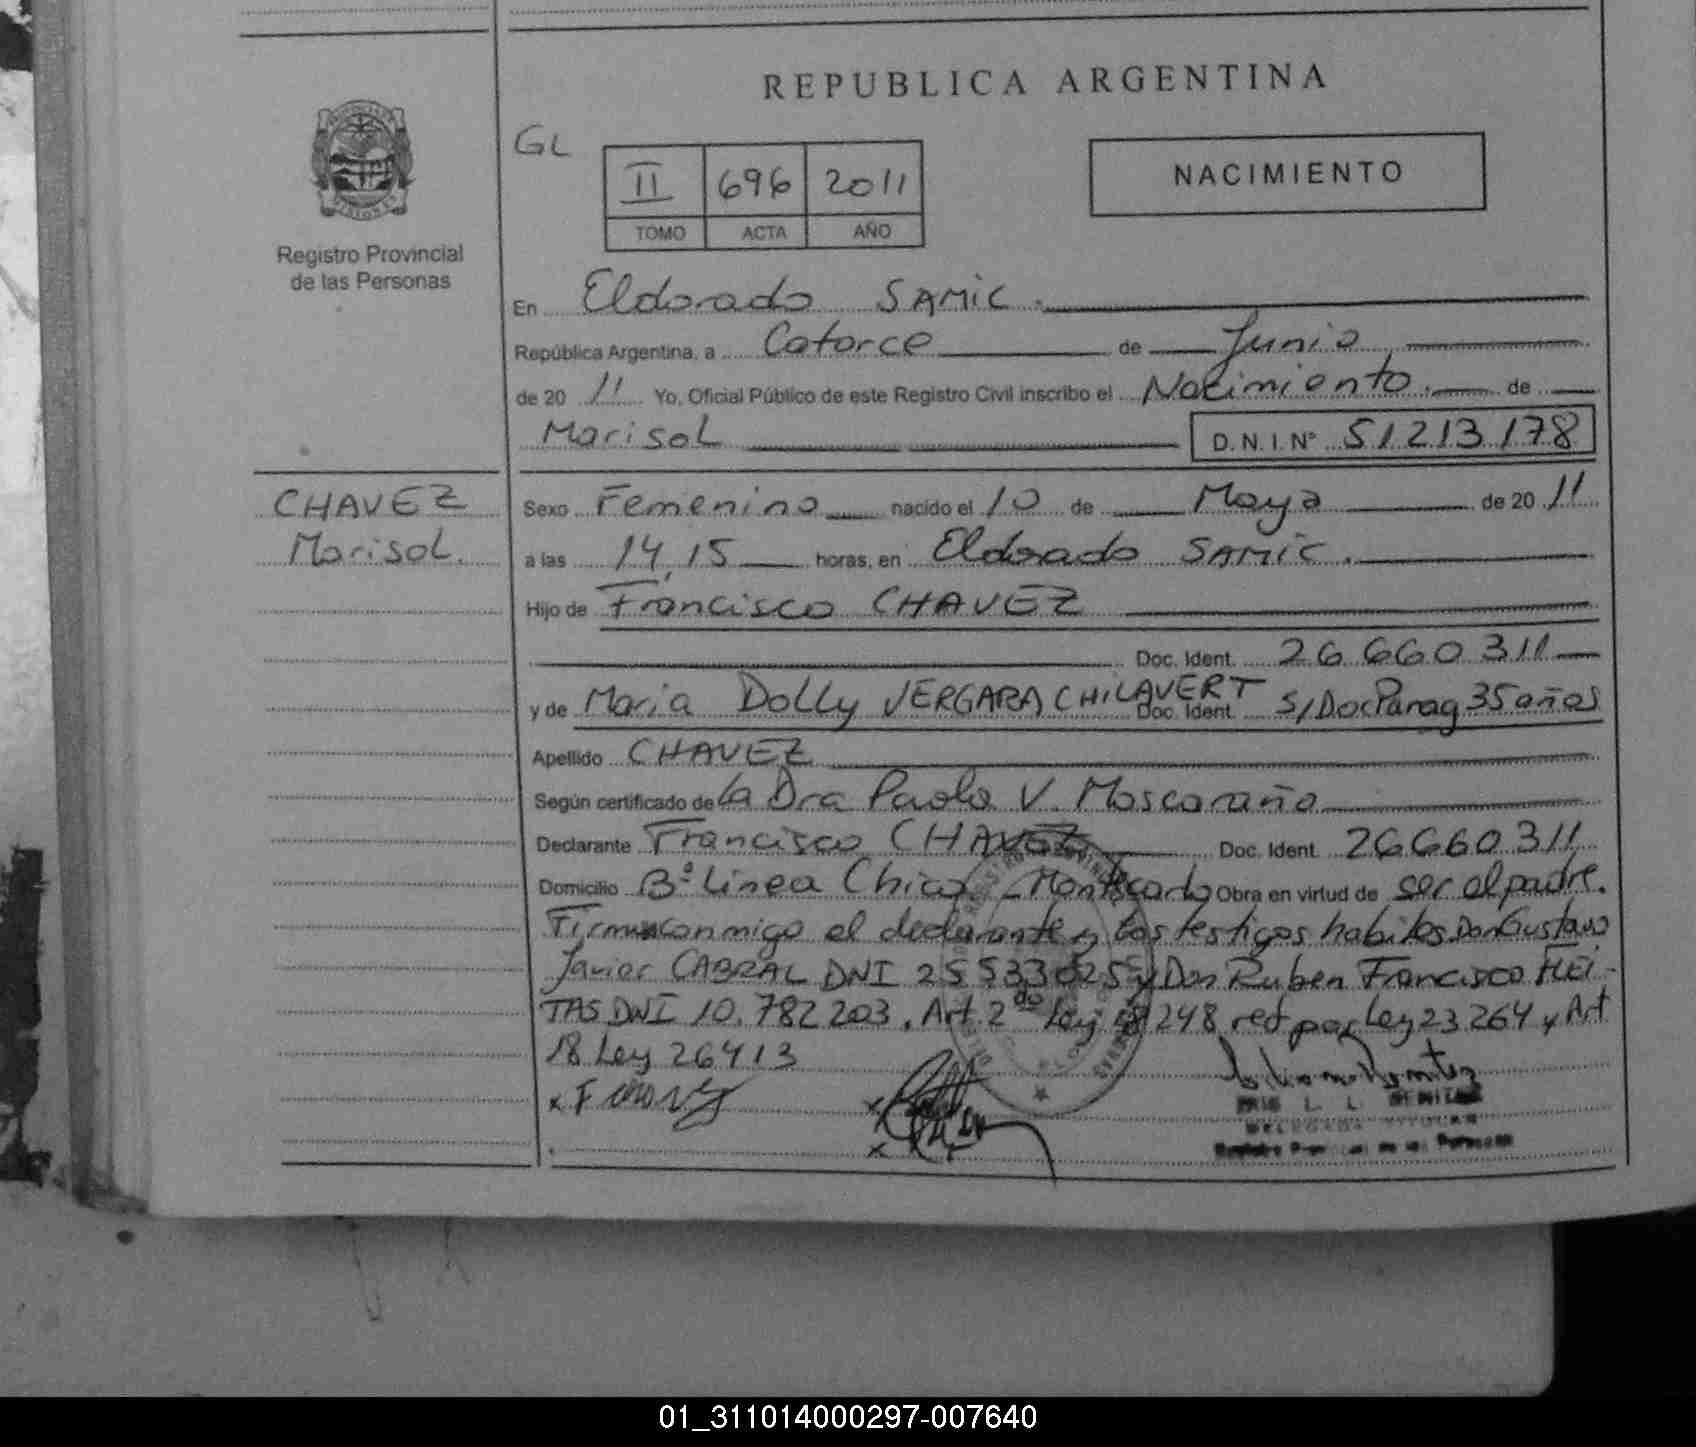 REPUBLICA ARGENTINA
GL
II 696 2011
TOMO ACTA AÑO
NACIMIENTO
Registro Provincial
de las Personas
En Eldorado SAMIC.
República Argentina, a Catorce de Junio
de 20 11 Yo, Oficial Público de este Registro Civil inscribo el Nacimiento. de
Marisol D.N.I.N° 51213178
CHAVEZ
Marisol.
Sexo Femenino nacido el 10 de Mayo de 20 11
a las 14,15 horas, en Eldorado SAMIC.
Hijo de Francisco CHAVEZ
Doc. Ident. 26660311
y de Maria Dolly VERGARA CHILAVERT Doc. Ident. S/Doc Parag 35 años
Apellido CHAVEZ
Según certificado de la Dra Paola V. Moscoraño
Declarante Francisco CHAVEZ Doc. Ident. 26660311
Domicilio B° Linea Chica - Montecarlo Obra en virtud de ser el padre.
Firman conmigo el declarante y los testigos habiles Don Gustavo
Javier CABRAL DNI 25533025 y Don Ruben Francisco FLEI-
TAS DNI 10.782203. Art. 2do Ley 18248 ref por Ley 23264 y Art
18 Ley 26413
x F
x
x
Registro Provincial de las Personas
01_311014000297-007640